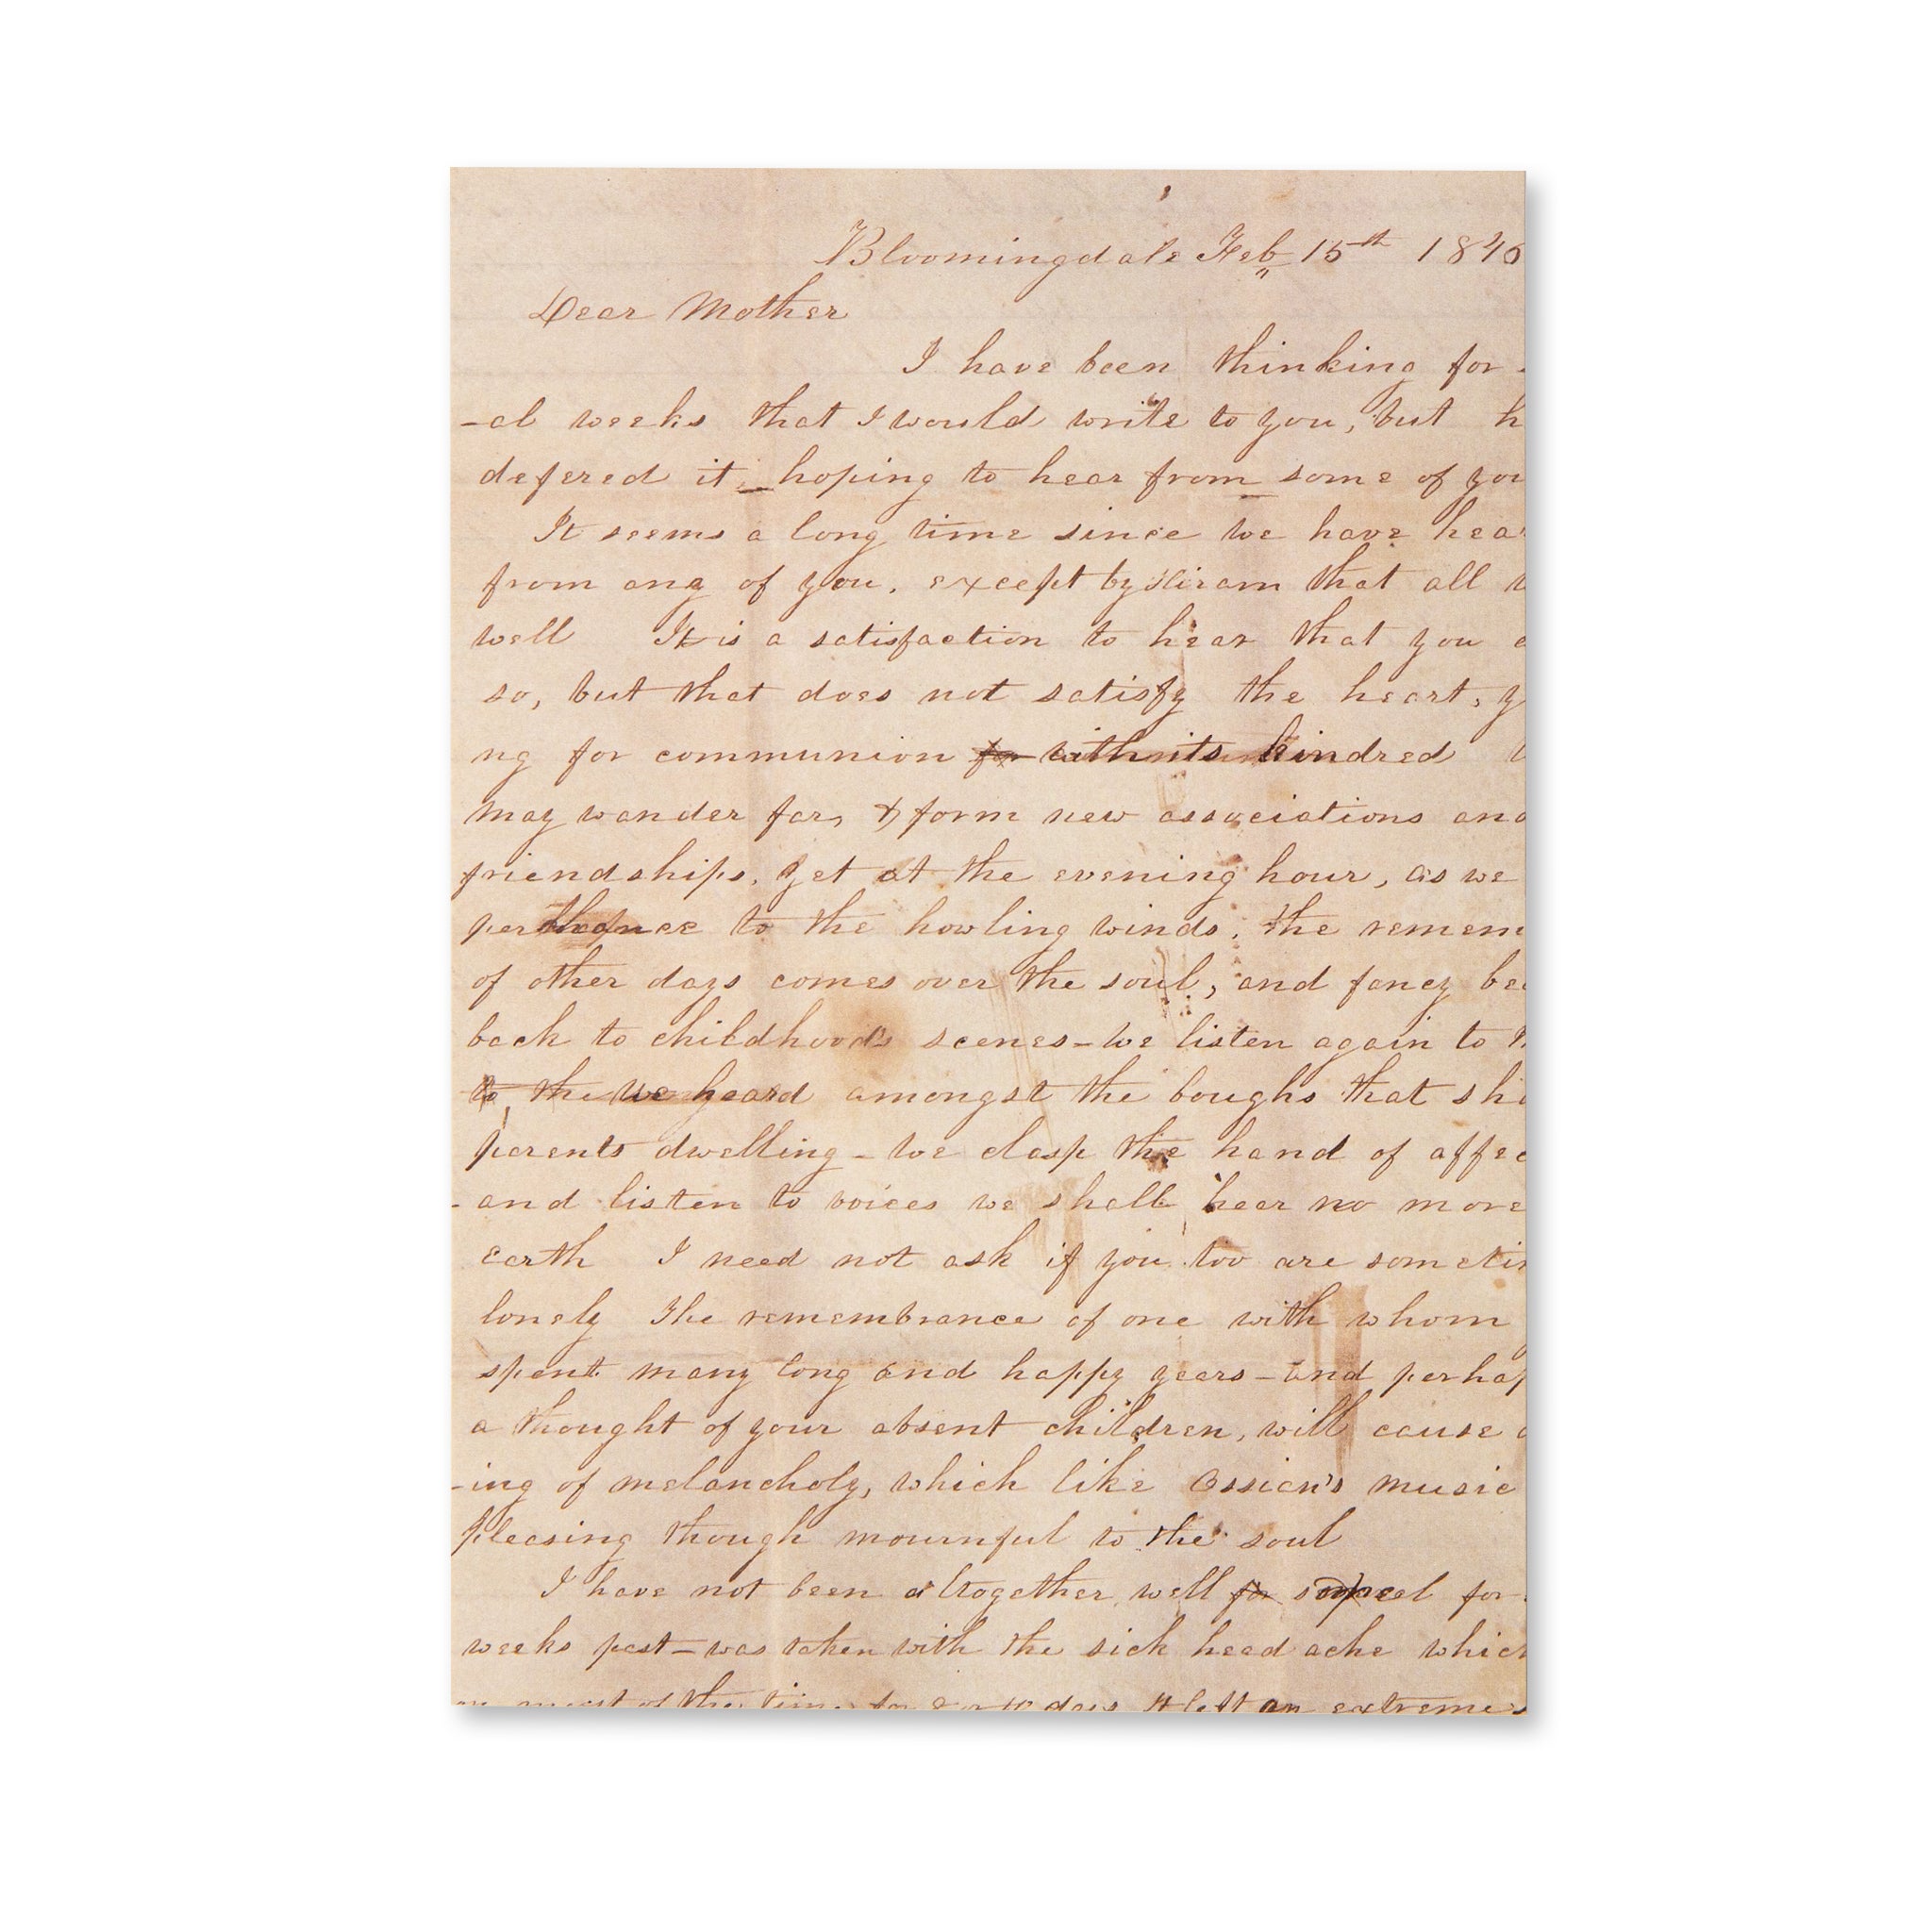 Bloomingdale Feb 15th 184
Dear Mother
I have been thinking for
-al weeks that I would write to you, but h
defered it hoping to hear from some of you
It seems a long time since we have hear
from any of you, except by Hiram that all w
well It is a satisfaction to hear that you a
so, but that does not satisfy the heart, y
ng for communion with its kindred
may wander far, & form new associations and
friendships, yet at the evening hour, as we
perchance to the howling winds, the remem
of other days comes over the soul, and fancy bea
back to childhood's scenes - we listen again to
to the we heard amongst the boughs that sha
parents dwelling - we clasp the hand of affec
-and listen to voices we shall hear no more
earth I need not ask if you too are sometim
lonely The remembrance of one with whom
spent many long and happy years - and perhap
a thought of your absent children, will cause
-ing of melancholy, which like Ossian's music
pleasing though mournful to the soul
I have not been altogether well for
weeks past - was taken with the sick head ache which
most of the time for days It left an extreme